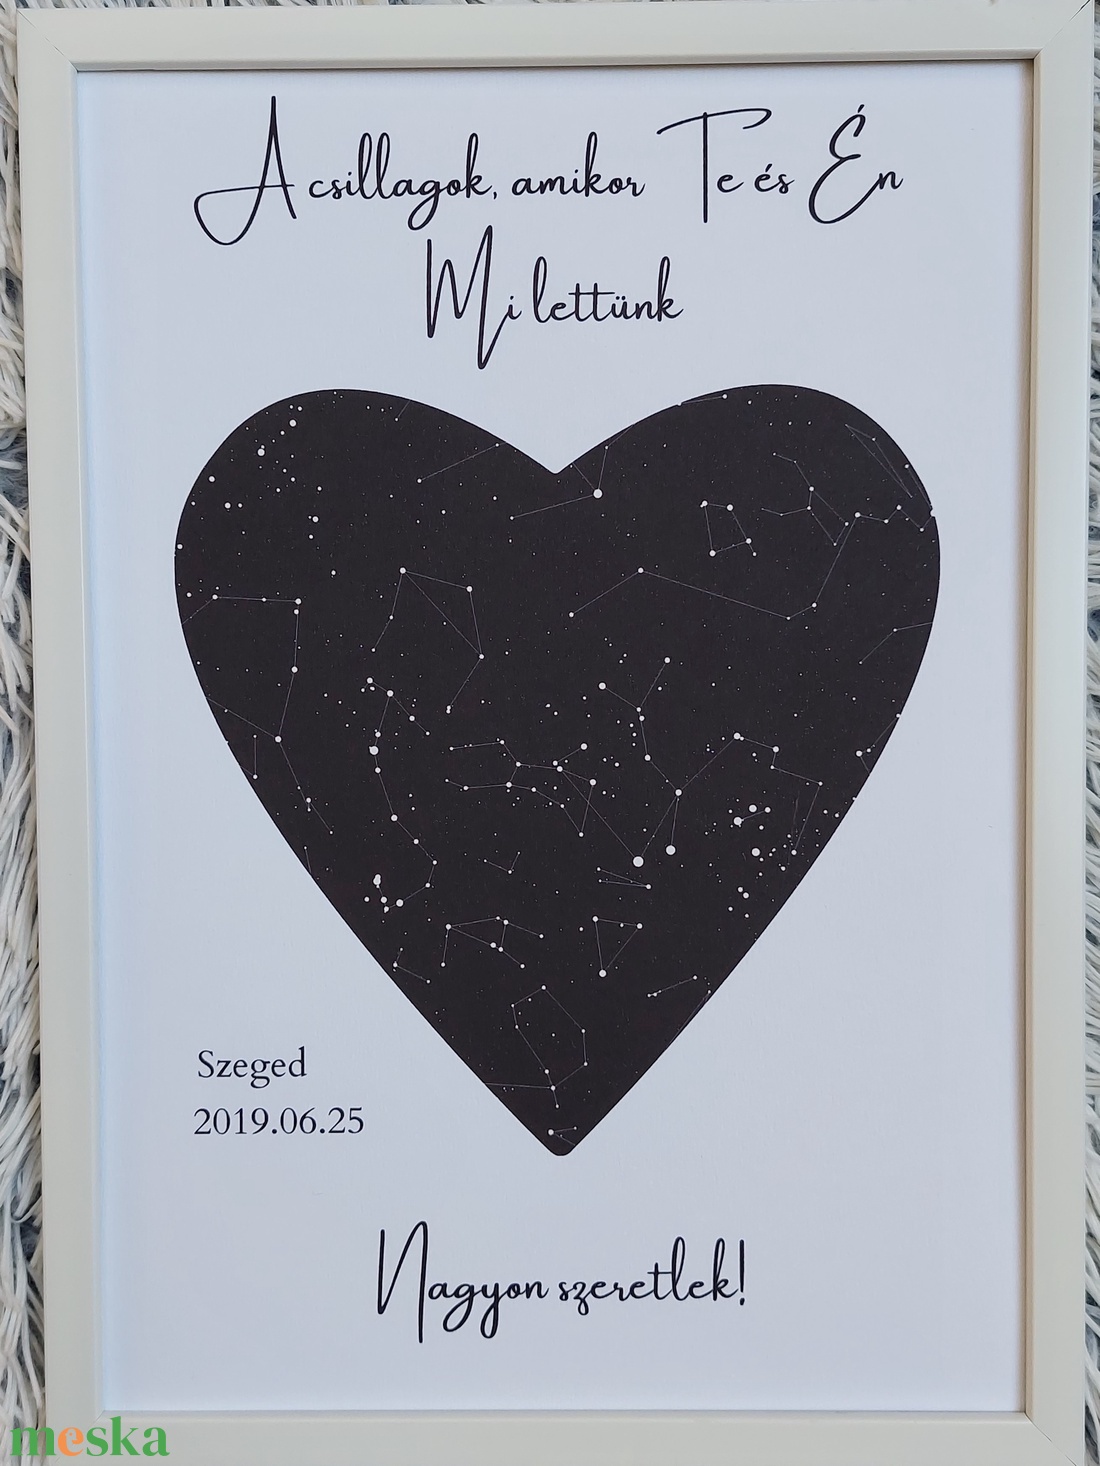 A csillagok, amikor Te és Én
Mi lettünk
Szeged
2019.06.25
Nagyon szeretlek!
meska